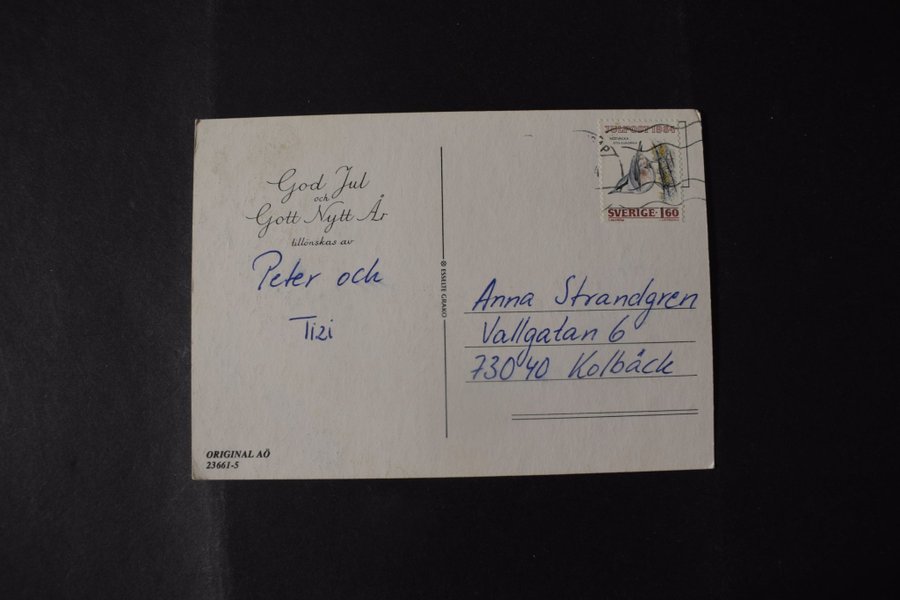 God Jul
och
Gott Nytt År
tillönskas av
Peter och
Tizi
ORIGINAL AÖ
23661-5
ESSELTE GRAKO
JULPOST 1984
SVERIGE 1.60
Anna Strandgren
Vallgatan 6
730 40 Kolbäck